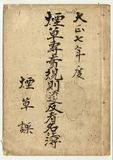 大正七年度
煙草專賣規則違反者名簿
煙草課